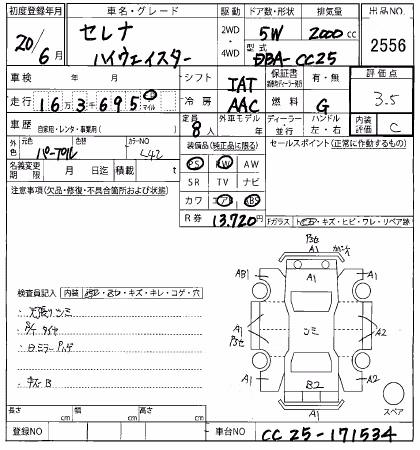 初度登録年月 車名・グレード 駆動 ドア数・形状 排気量 出品NO.
20/6月 セレナ 2WD・4WD 5W 2000cc 2556
ハイウェイスター 型式 DBA-CC25
車検 年 月 シフト IAT 保証書 有・無 評価点
走行 16万3千695 マイル 冷房 AAC 燃料 G 3.5
車歴 自家用・レンタ・事業用( ) 定員 8人 外車モデル ディーラー・並行 ハンドル 左・右 内装評価 C
外色 元色 パープル 色替 カラーNO L42 装備品(純正品に限る) セールスポイント(正常に作動するもの)
PS PW AW
名義変更期限 月 日迄 積載 t SR TV ナビ
注意事項(欠品・修復・不具合箇所および状態) カワ エアB ABS
R券 13,720円 Fガラス トビ石・キズ・ヒビ・ワレ・リペア跡
検査員記入 内装
天張りシミ
タイヤ
ミラー
キズ
A1
A1
AB1 A1
A1 A2
シミ
A1 A2
B2
A1
スペア
長さ cm 幅 cm 高さ cm
登録NO 車台NO CC25-171534